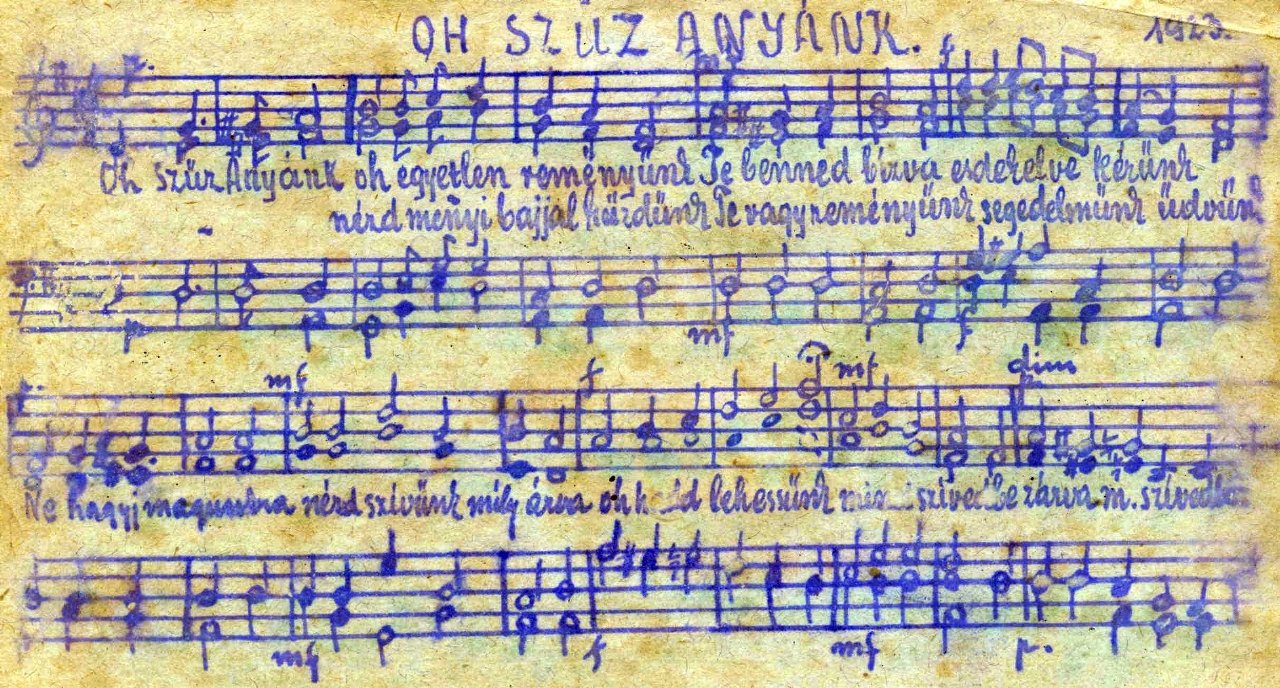 OH SZŰZ ANYÁNK. 1923.
p. mf f
Oh Szűz Anyánk oh egyetlen reményünk Te benned bízva esdekelve kérünk
nézd menyi bajjal küzdünk Te vagy reményünk segedelmünk
p mf f
mf f mf dim
Ne hagyj magunkra nézd szívünk mily árva oh lehessünk szívedbe zárva m. szívedbe
mf f mf p.